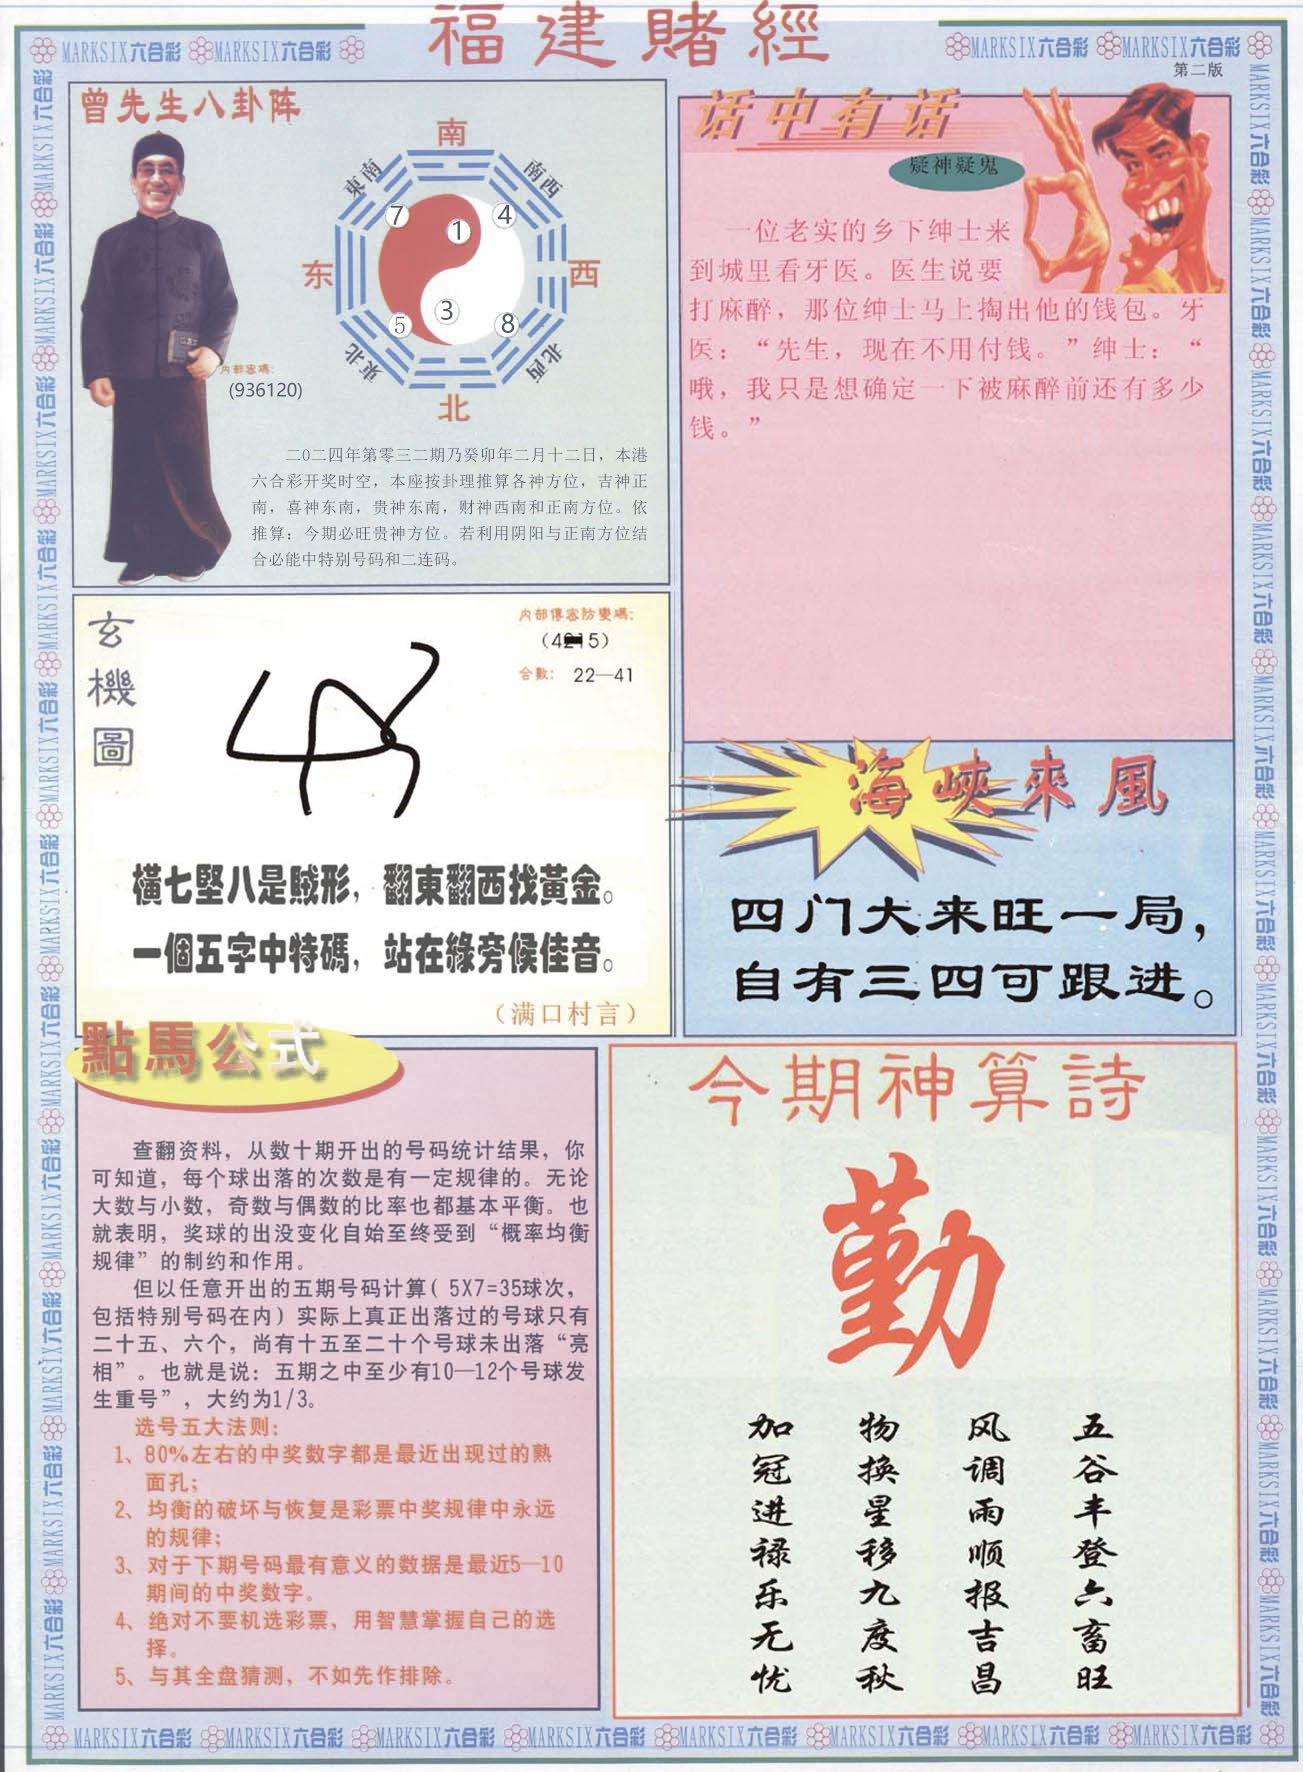 福建賭經
MARKSIX六合彩 MARKSIX六合彩
MARKSIX六合彩 MARKSIX六合彩
第二版
曾先生八卦阵
南
東南
南西
7
1
4
东
西
5
3
8
東北
北西
北
内部密碼:
(936120)
二0二四年第零三二期乃癸卯年二月十二日，本港
六合彩开奖时空，本座按卦理推算各神方位，吉神正
南，喜神东南，贵神东南，财神西南和正南方位。依
推算：今期必旺贵神方位。若利用阴阳与正南方位结
合必能中特别号码和二连码。
话中有话
疑神疑鬼
一位老实的乡下绅士来
到城里看牙医。医生说要
打麻醉，那位绅士马上掏出他的钱包。牙
医：“先生，现在不用付钱。”绅士：“
哦，我只是想确定一下被麻醉前还有多少
钱。”
玄機圖
内部傳密防變碼:
合數: 22—41
橫七堅八是賊形，翻東翻西找黃金。
一個五字中特碼，站在綠旁候佳音。
（满口村言）
海峽來風
四门大来旺一局，
自有三四可跟进。
點馬公式
查翻资料，从数十期开出的号码统计结果，你
可知道，每个球出落的次数是有一定规律的。无论
大数与小数，奇数与偶数的比率也都基本平衡。也
就表明，奖球的出没变化自始至终受到“概率均衡
规律”的制约和作用。
但以任意开出的五期号码计算( 5X7=35球次，
包括特别号码在内）实际上真正出落过的号球只有
二十五、六个，尚有十五至二十个号球未出落“亮
相”。也就是说：五期之中至少有10—12个号球发
生重号”，大约为1/3。
选号五大法则：
1、80%左右的中奖数字都是最近出现过的熟
面孔；
2、均衡的破坏与恢复是彩票中奖规律中永远
的规律；
3、对于下期号码最有意义的数据是最近5—10
期间的中奖数字。
4、绝对不要机选彩票，用智慧掌握自己的选
择。
5、与其全盘猜测，不如先作排除。
今期神算詩
勤
五谷丰登六畜旺
风调雨顺报吉昌
物换星移九度秋
加冠进禄乐无忧
MARKSIX六合彩 MARKSIX六合彩 MARKSIX六合彩 MARKSIX六合彩 MARKSIX六合彩 MARKSIX六合彩 MARKSIX六合彩 MARKSIX六合彩